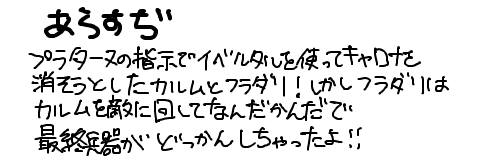 あらすぢ
プラターヌの指示でイベルタルを使ってキャロナを
消そうとしたカルムとフラダリ！しかしフラダリは
カルムを敵に回してなんだかんだで
最終兵器がどっかんしちゃったよ！！